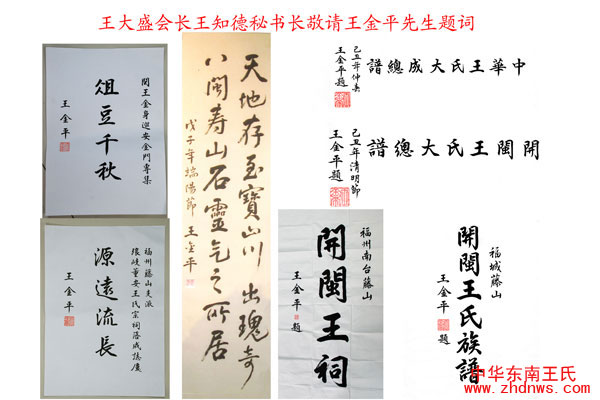 王大盛会长王知德秘书长敬请王金平先生题词
閩王金身巡安金門專集
俎豆千秋
王金平
天地存至寶山川出瑰奇
八閩寿山石靈气之所居
戊子年端陽節 王金平
中華王氏大成總譜
己丑年仲春
王金平題
開閩王氏大總譜
己丑年清明節
王金平題
福州藤山支派
王氏宗祠落成誌慶
源遠流長
王金平
福州南台藤山
開閩王祠
王金平題
福城藤山
開閩王氏族譜
王金平題
中华东南王氏
www.zhdnws.com